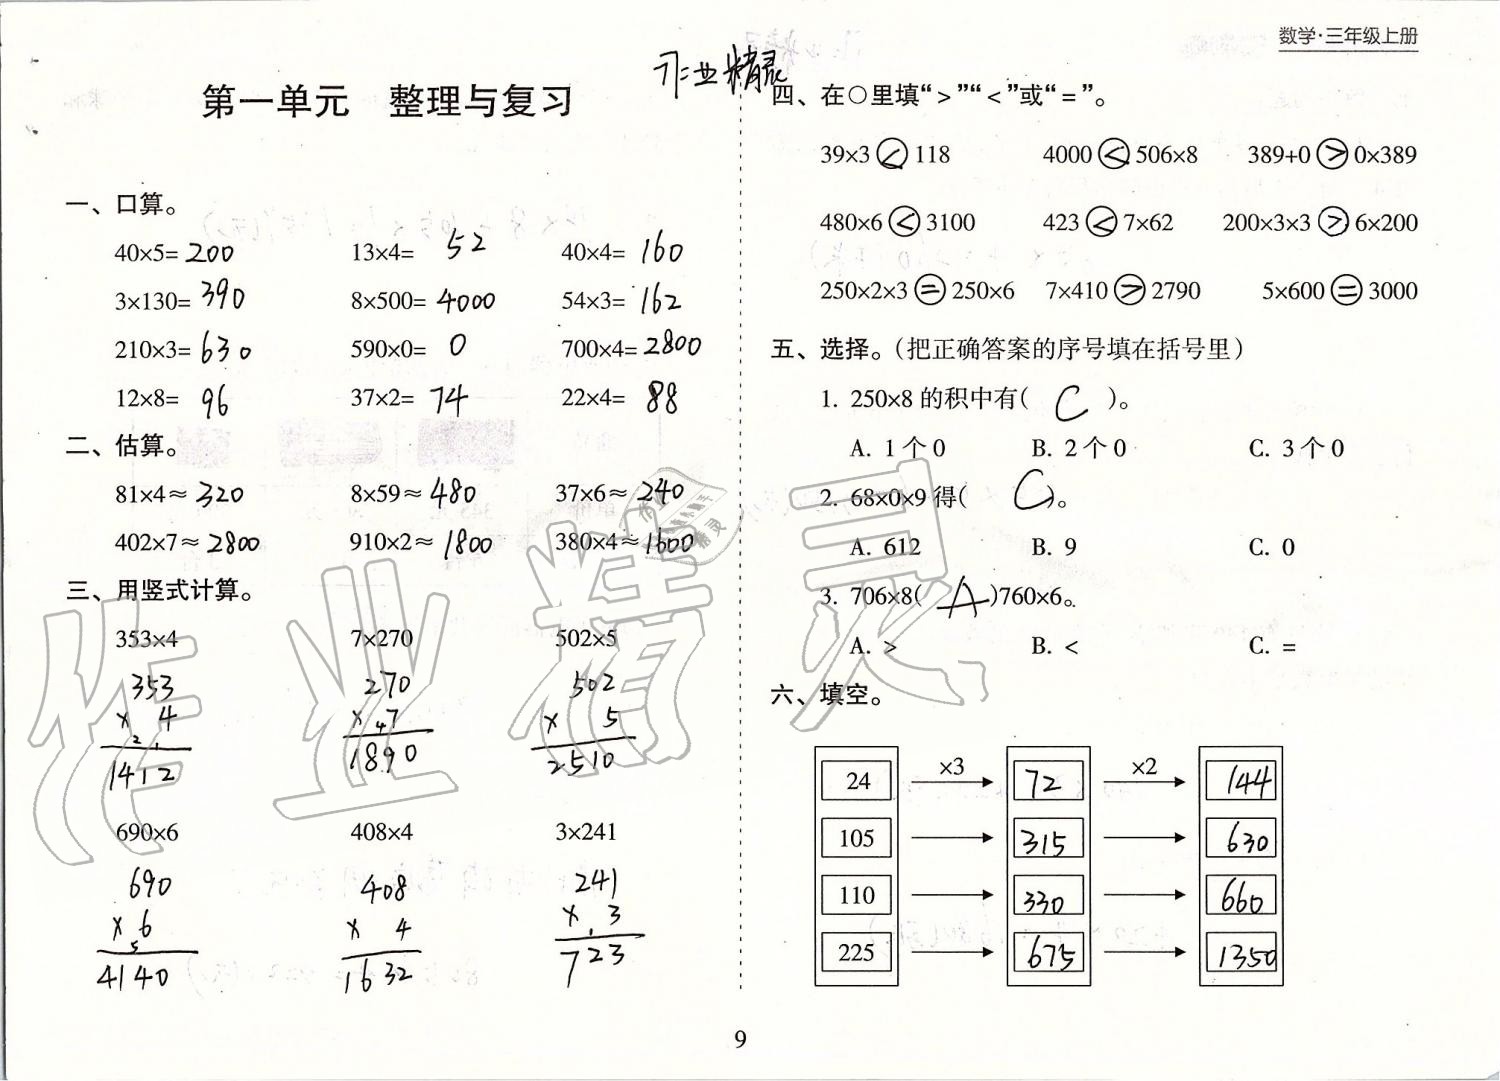 数学·三年级上册
作业精灵
第一单元　整理与复习
一、口算。
40×5=200　13×4=52　40×4=160
3×130=390　8×500=4000　54×3=162
210×3=630　590×0=0　700×4=2800
12×8=96　37×2=74　22×4=88
二、估算。
81×4≈320　8×59≈480　37×6≈240
402×7≈2800　910×2≈1800　380×4≈1600
三、用竖式计算。
353×4　7×270　502×5
353　270　502
× 4　× 7　× 5
2 1　4
1412　1890　2510
690×6　408×4　3×241
690　408　241
× 6　× 4　× 3
5　1
4140　1632　723
四、在○里填“>”“<”或“=”。
39×3<118　4000<506×8　389+0>0×389
480×6<3100　423<7×62　200×3×3>6×200
250×2×3=250×6　7×410>2790　5×600=3000
五、选择。（把正确答案的序号填在括号里）
1. 250×8 的积中有( C )。
A. 1个0　B. 2个0　C. 3个0
2. 68×0×9得( C )。
A. 612　B. 9　C. 0
3. 706×8( A )760×6。
A. >　B. <　C. =
六、填空。
24　×3　72　×2　144
105　315　630
110　330　660
225　675　1350
9
作业精灵